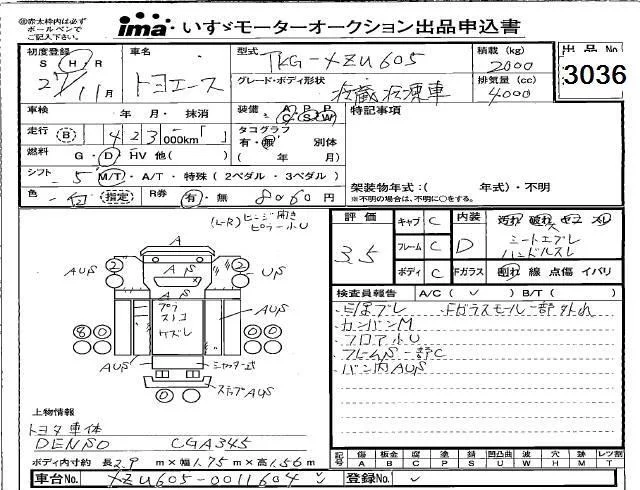 ※赤太枠内は必ず
ボールペンで
ご記入下さい。
ima いすゞモーターオークション出品申込書
初度登録 S・H・R 27/11月
車名 トヨエース
型式 TKG-XZU605
積載(kg) 2000
出品No. 3036
グレード・ボディ形状 冷蔵冷凍車
排気量(cc) 4000
車検 年 月・抹消
装備 A/C P/S P/W
特記事項
走行 B 423 000km「 」
タコグラフ 有・無 別体
( 年 月)
燃料 G・D・HV 他( )
シフト 5 M/T・A/T・特殊(2ペダル・3ペダル)
架装物年式:( 年式)・不明
※不明の場合は、不明に○をする。
色 白 指定 R券 有・無 8060円
(L-R)ヒンジ開き
ピラー小U
評価 3.5
キャブ C
フレーム C
ボディ C
内装 D
シートスレ
ハンドルスレ
Fガラス 割れ 線 点傷 イバリ
検査員報告 A/C( ✓ ) B/T( )
Fガラスモール一部外れ
・カンバンM
・フロア小U
・フレームS一部C
・バン内AUS
A
2 2
AUS US
AS
AS
80 00
AUS
シャッター式
ステップAUS
00
上物情報
トヨタ車体
DENSO CGA345
ボディ内寸約 長2.9 m×幅1.75 m×高1.56m
記号 傷 A 板金 B 腐 C 塗 P 錆 S 凹凸曲 U 波 W 穴 H 跡 M レツ割 T
車台No. XZU605-0011604
登録No.